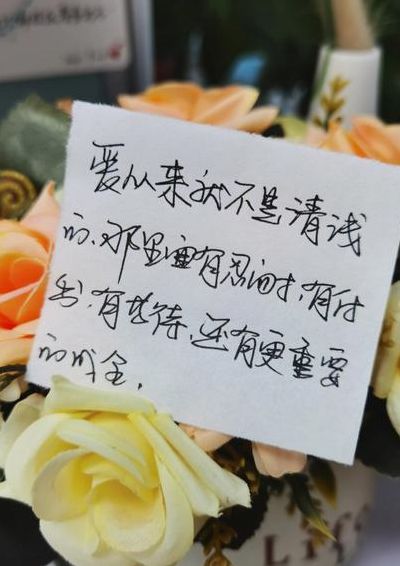 爱从来就不是清浅
的、那里面有忍耐,有付
出,有等待,还有更重要
的成全.